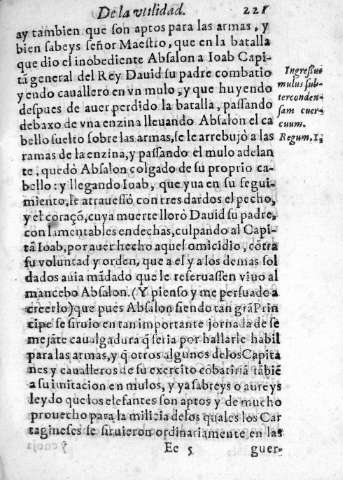 De la vtilidad. 221
ay tambien que son aptos para las armas, y
bien sabeys señor Maestro, que en la batalla
que dio el inobediente Absalon a Ioab Capi-
tã general del Rey Dauid su padre combatio
yendo cauallero en vn mulo, y que huyendo
despues de auer perdido la batalla, passando
debaxo de vna enzina lleuando Absalon el ca
bello suelto sobre las armas, se le arrebujò a las
ramas de la enzina, y passando el mulo adelan
te, quedò Absalon colgado de su proprio ca-
bello: y llegando Ioab, que yua en su segui-
miento, le atrauessò con tres dardos el pecho,
y el coraçõ, cuya muerte llorò Dauid su padre,
con lamentables endechas, culpando al Capi-
tã Ioab, por auer hecho aquel omicidio, cõtra
su voluntad y orden, que a el y a los demas sol
dados auia mãdado que le reseruassen viuo al
mancebo Absalon. (Y pienso y me persuade a
creerlo) que pues Absalon siendo tan grã Prin
cipe se siruio en tan importante jornada de se
mejãte caualgadura q̃ seria por hallarle habil
para las armas, y q̃ otros algunos de los Capita
nes y caualleros de su exercito cõbatiriã tãbiẽ
a su imitacion en mulos, y ya sabreys o aureys
leydo que los elefantes son aptos y de mucho
prouecho para la milicia de los quales los Car
tagineses se siruieron ordinariamente en las
Ee 5 guer-
Ingressus
mulus sub-
ter conden-
sam cuer-
cuum.
Regum, 1.